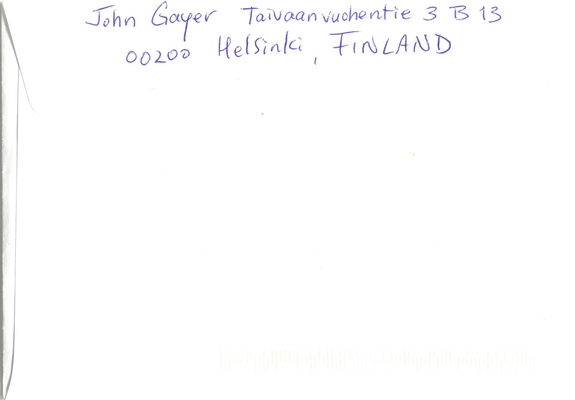 John Gayer Taivaanvuohentie 3 B 13
00200 Helsinki, FINLAND